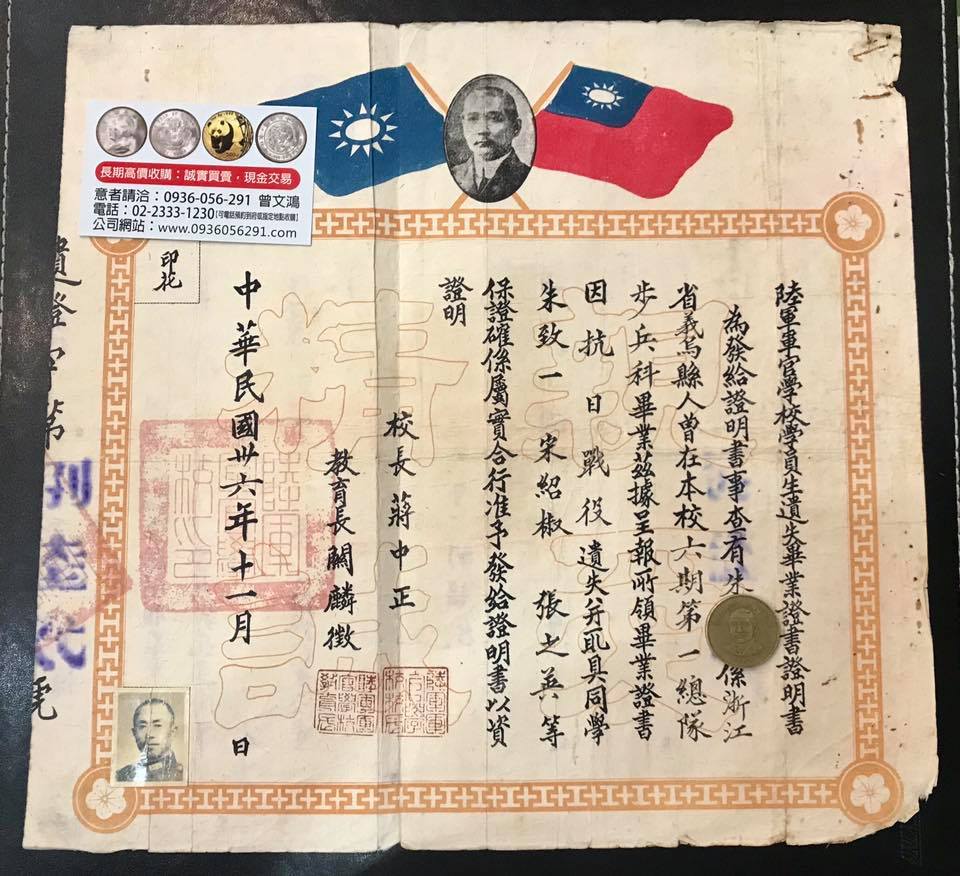 長期高價收購：誠實買賣，現金交易
意者請洽：0936-056-291 曾文鴻
電話：02-2333-1230(可電話預約到府或指定地點收購)
公司網站：www.0936056291.com
陸軍軍官學校學員生遺失畢業證書證明書
為發給證明書事查有朱 係浙江
省義烏縣人曾在本校六期第一總隊
步兵科畢業茲據呈報所領畢業證書
因抗日戰役遺失并取具同學
朱致一 宋紹椒 張之英等
保證確係屬實合行准予發給證明書以資
證明
校長蔣中正
教育長關麟徵
中華民國卅六年十一月 日
印花
遺證字第
號